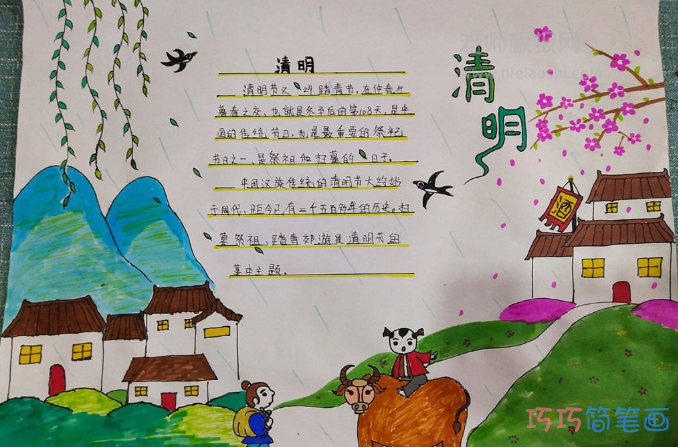 清明
清明节又叫踏青节，在仲春与
暮春之交，也就是冬至后的第108天，是中
国的传统节日，也是最重要的祭祀
节日之一，是祭祖和扫墓的日子。
中国汉族传统的清明节大约始
于周代，距今已有二千五百多年的历史，扫
墓祭祖，踏青郊游是清明节的
基本主题。
清明
酒
巧巧简笔画